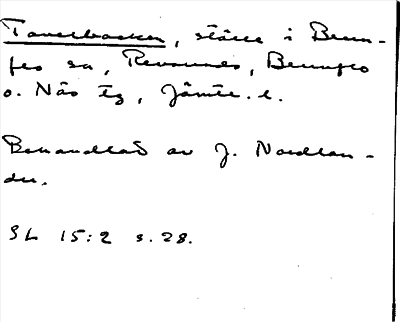 Tavelbacken, ställe i Brun-
flo sn, Revsunds, Brunflo
o. Näs tg, Jämtl. l.
Behandlad av J. Nordlan-
der.
SL 15:2 s. 28.